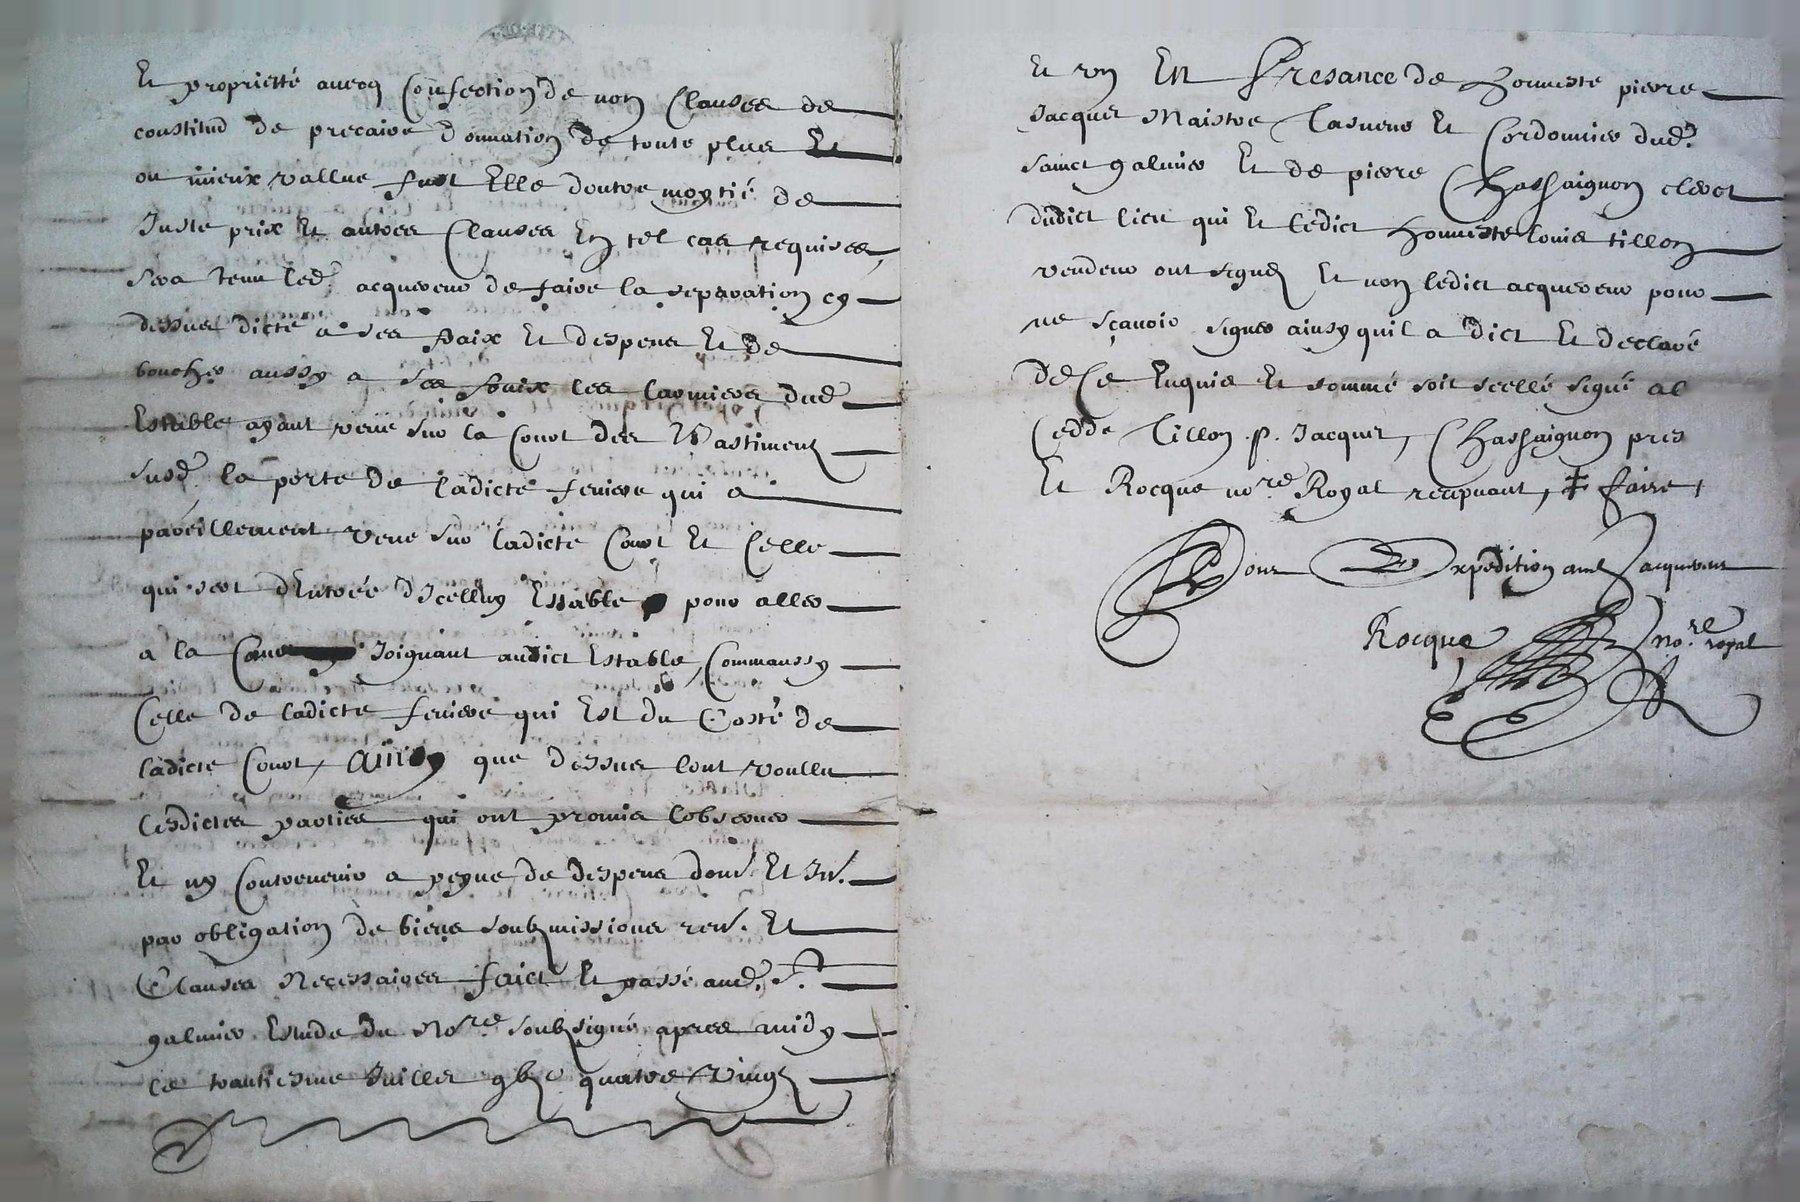 Et proprietté avecq Confection de nom Clauses de
constitud de precaire donnation de toute plus Et
ou mieux vallue fust Elle doutre moytié de
Juste prix Et autres Clauses En tel cas requises,
sera tenu led. acquereur de faire la separation cy
dessus dicte a ses fraix Et despens Et de
boucher aussy a ses fraix les larmiers dud.
Estable ayant veue sur la Court des Bastiments
susd. la porte de ladicte feniere qui a
pareillement veue sur ladicte Court Et Celle
qui sert dEntrée dIcelluy Estable pour aller
a la Cave Joignant audict Estable, Comm aussy
Celle de ladicte feniere qui Est du Costé de
ladicte Court, ainsy que dessus lont voullu
lesdictes parties qui ont promis lobserver
Et ny Contrevenir a peyne de despens dom. Et In.
par obligation de biens soubmissions ren. Et
Clauses Necessaires faict Et passé aud. St.
galmier Estude du No.re soubsigné apres midy
le trantiesme Juillet quatre Vingt
Et un En Presance de honneste pierre
Jacques Maistre Tasneur Et Cordonnier dud.
sainct galmier Et de pierre Chassaignon clerct
dudict lieu qui Et ledict honneste louis tillon
vendeur ont signé Et non ledict acquereur pour
ne sçavoir signer ainsy quil a dict Et declaré
de Ce Enquis Et sommé soit scellé signé al
Cedde Tillon. p. Jacques, Chassaignon pres
Et Rocque no.re Royal recepvant, ‡ faire,
Pour Expedition aud. acquereur
Rocque no.re royal